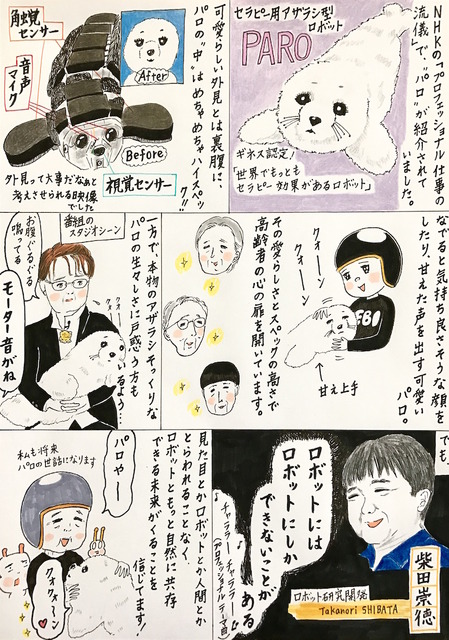 NHKの「プロフェッショナル 仕事の
流儀」で、“パロ”が紹介されて
いました。
セラピー用アザラシ型
ロボット
PARO
ギネス認定!
「世界でもっとも
セラピー効果があるロボット」
可愛らしい外見とは裏腹に、
パロの“中”はめちゃめちゃハイスペック!!
角蛙覚
センサー
音声
マイク
After
Before
視覚センサー
外見って大事だなぁと
考えさせられる映像
でした
なでると気持ち良さそうな顔を
したり、甘えた声を出す可愛い
パロ。
クォーン
クォーン
FBI
甘え上手
その愛らしさとスペックの高さで
高齢者の心の扉を開いています。
一方で、本物のアザラシそっくりな
パロの生々しさに戸惑う方も
いるよう…
番組の
スタジオシーン
お腹ぐるぐる
鳴ってる
モーター音がね
でも、
柴田崇徳
ロボット研究開発
Takanori SHIBATA
ロボットには
ロボットにしか
できないことが
ある
チャララー チャララー♪
(プロフェッショナルテーマ曲)
見た目とかロボットとか人間とか
とらわれることなく
ロボットともっと自然に共存
できる未来がくることを
信じてます!
パロやー
私も将来
パロの世話になります
クォクォーン